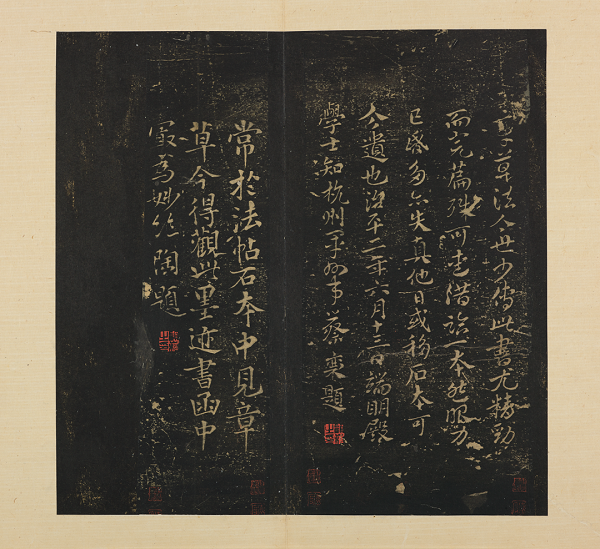 章草法今世少傳此書尤精勁
而完篇殊可愛借臨一本然眼力
已昏多亦失真他日或移石本可
今遺也治平二年六月十三日端明殿
學士知杭州軍州事蔡襄題
常於法帖石本中見章
草今得觀此墨迹書函中
寂為妙絕陶題